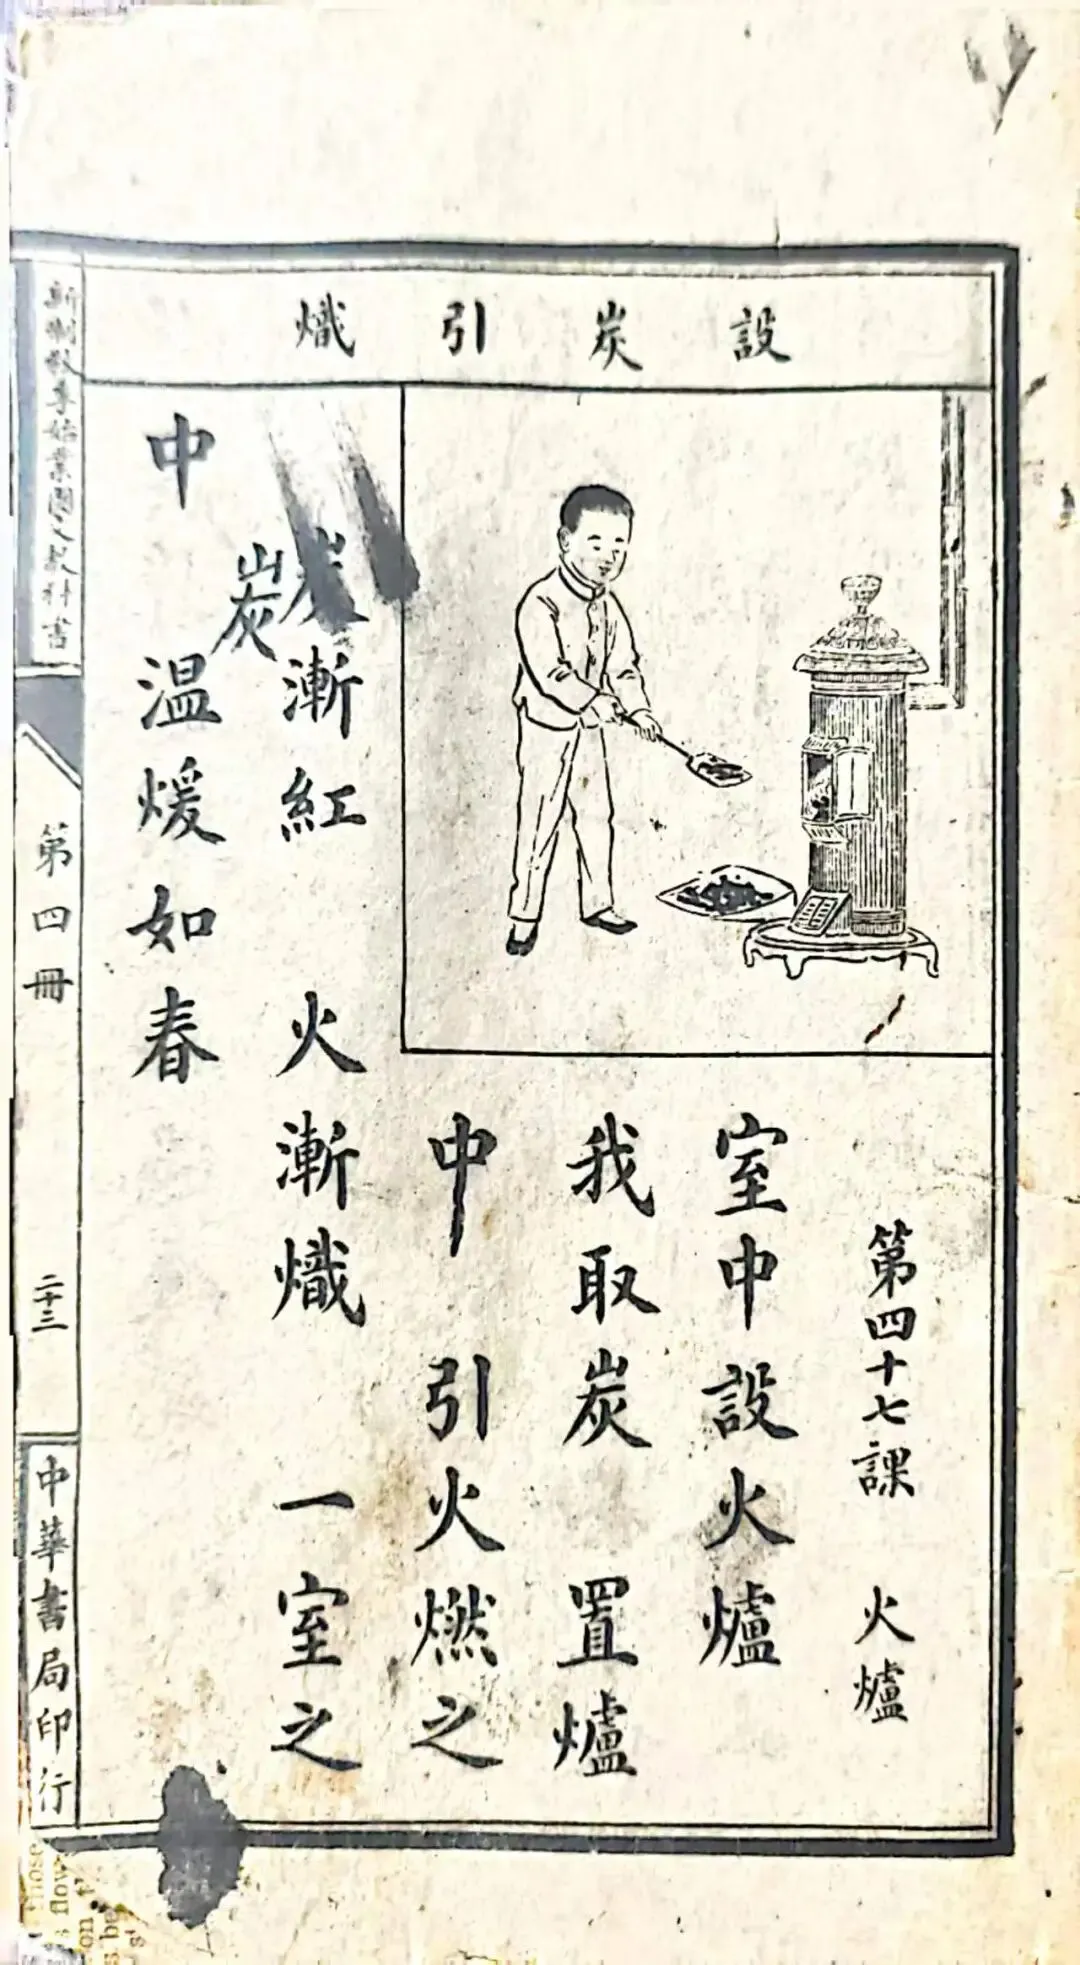 設炭引熾
第四十七課 火爐
室中設火爐
我取炭 置爐
中 引火燃之
炭漸紅 火漸熾 一室之
炭
中 溫煖如春
新制秋季始業國文教科書
第四冊
二十三
中華書局印行